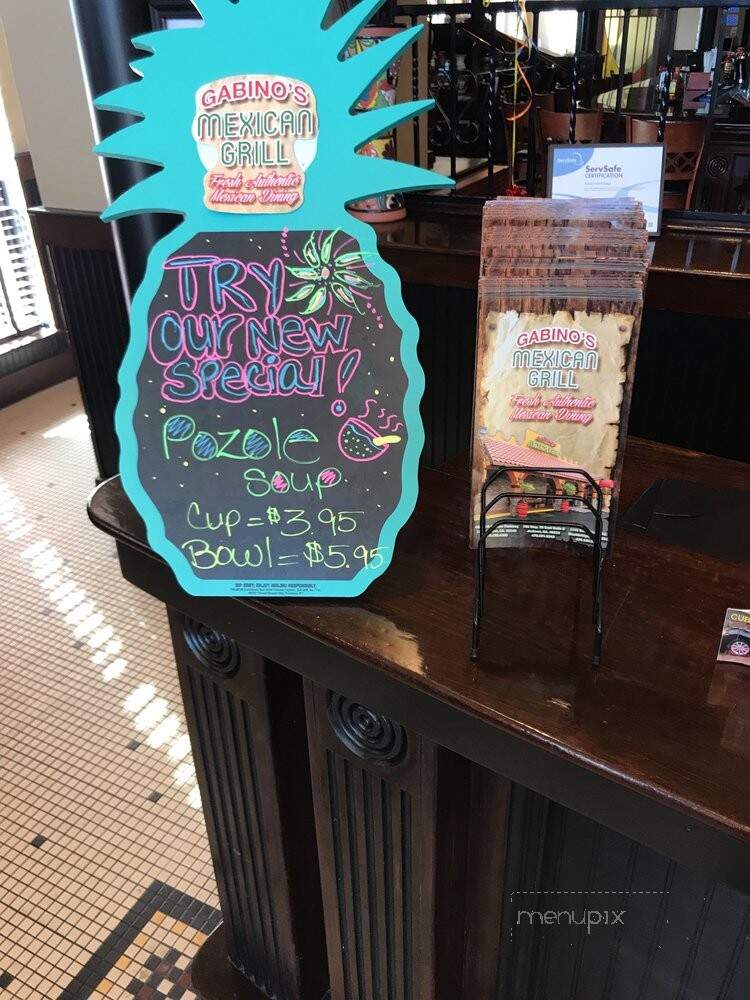 GABINO'S
MEXICAN
GRILL
Fresh Authentic
Mexican Dining
TRY
our new
special!
Pozole
soup
Cup = $3.95
Bowl = $5.95
ServSafe
CERTIFICATION
GABINO'S
MEXICAN
GRILL
Fresh Authentic
Mexican Dining
CUB
menupix